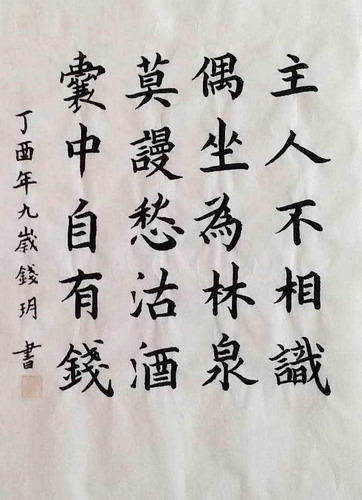 主人不相識
偶坐為林泉
莫謾愁沽酒
囊中自有錢
丁酉年九歲錢玥書